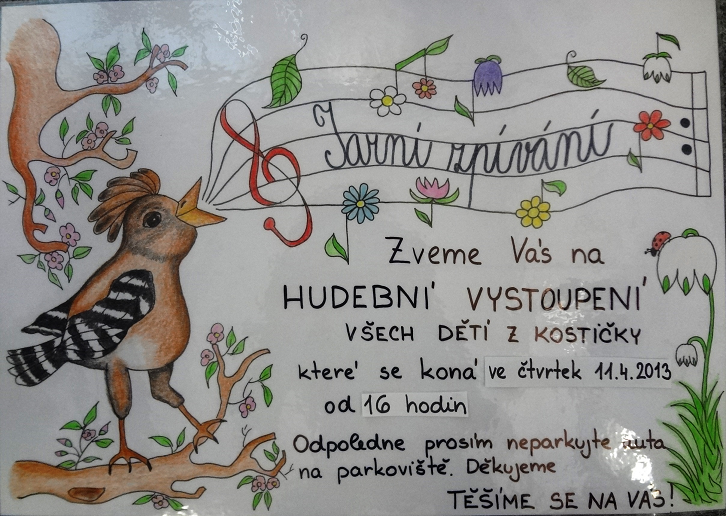 Jarní zpívání
Zveme Vás na
HUDEBNÍ VYSTOUPENÍ
VŠECH DĚTÍ Z KOSTIČKY
které se koná ve čtvrtek 11.4.2013
od 16 hodin
Odpoledne prosím neparkujte auta
na parkoviště. Děkujeme
TĚŠÍME SE NA VÁS!